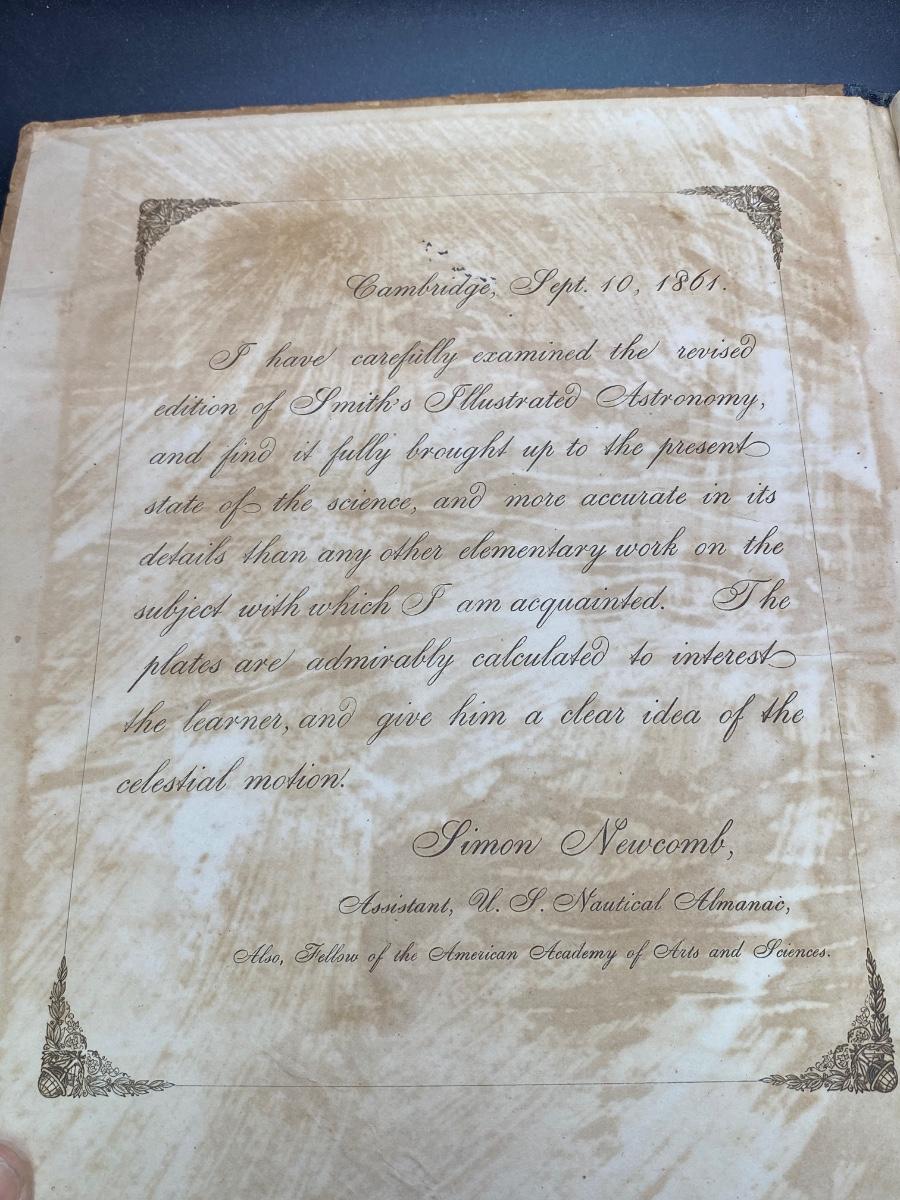 Cambridge, Sept. 10, 1861.
I have carefully examined the revised
edition of Smith's Illustrated Astronomy,
and find it fully brought up to the present
state of the science, and more accurate in its
details than any other elementary work on the
subject with which I am acquainted. The
plates are admirably calculated to interest
the learner, and give him a clear idea of the
celestial motion.
Simon Newcomb,
Assistant, U. S. Nautical Almanac,
Also, Fellow of the American Academy of Arts and Sciences.